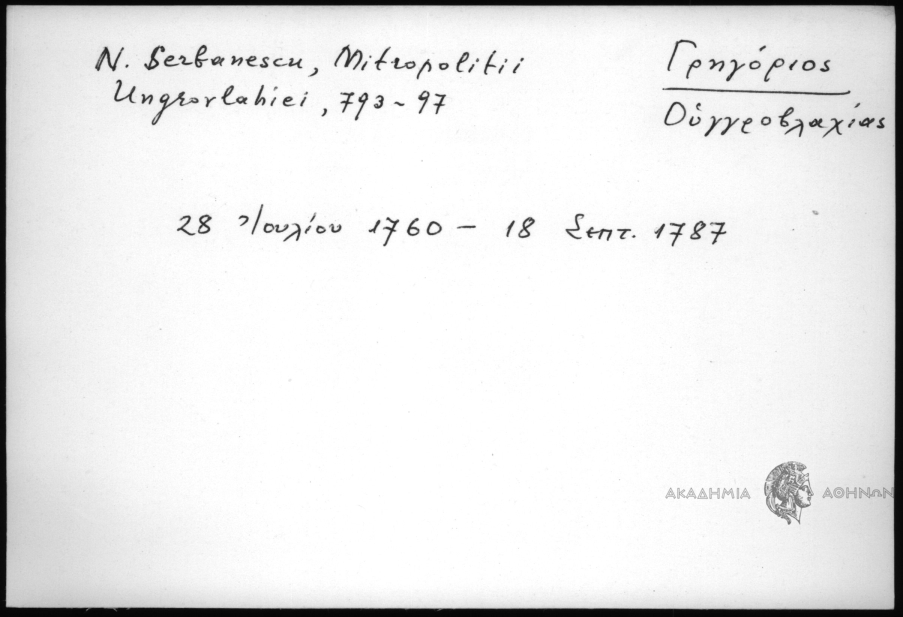 N. Serbanescu, Mitropolitii
Ungrovlahiei, 793-97
Γρηγόριος
Οὑγγροβλαχίας
28 Ἰουλίου 1760 - 18 Σεπτ. 1787
ΑΚΑΔΗΜΙΑ ΑΘΗΝΩΝ